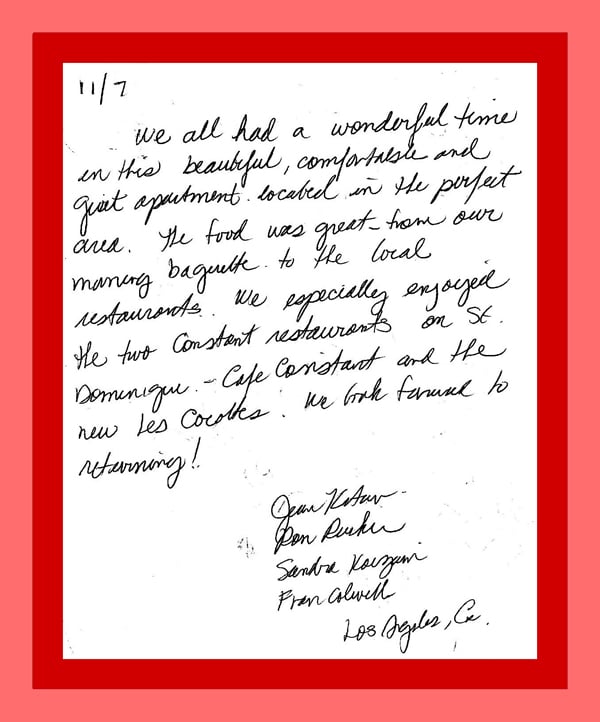 11/7
We all had a wonderful time
in this beautiful, comfortable and
quiet apartment located in the perfect
area. The food was great - from our
morning baguette to the local
restaurants. We especially enjoyed
the two Constant restaurants on St.
Dominique. - Cafe Constant and the
new Les Cocottes. We look forward to
returning!
Jean
Ron
Sandra
Fran Colwell
Los Angeles, Ca.